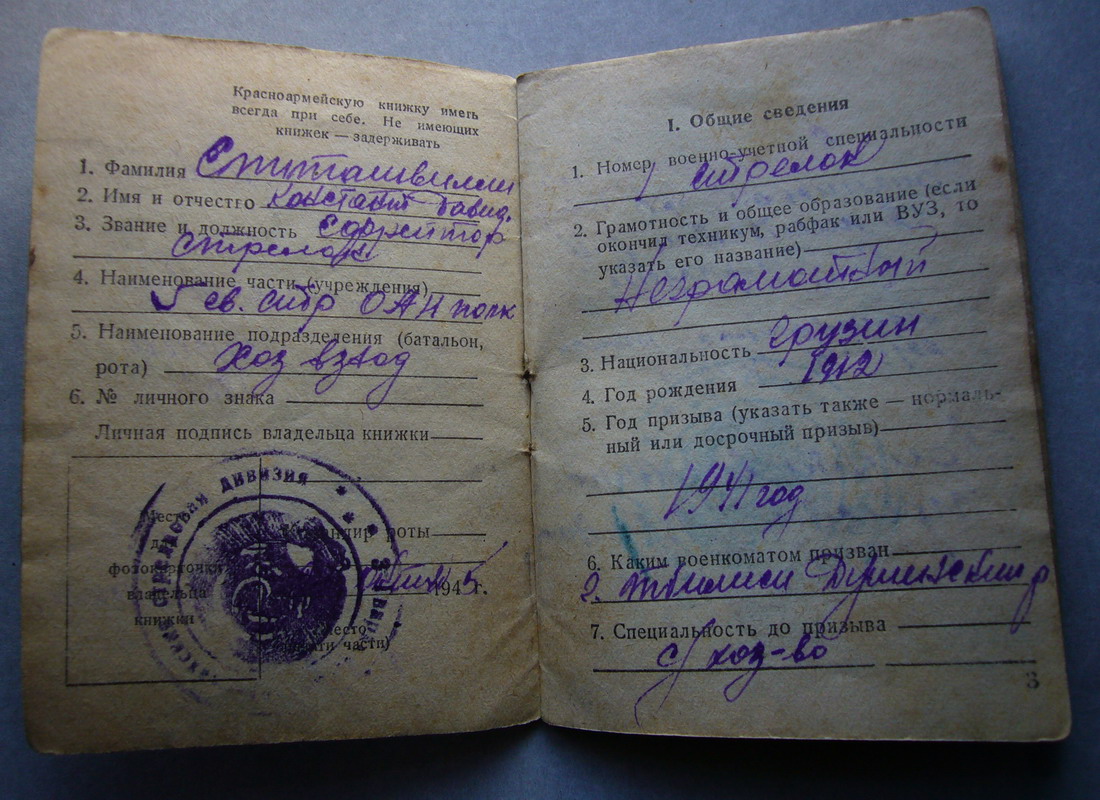 Красноармейскую книжку иметь
всегда при себе. Не имеющих
книжек — задерживать
1. Фамилия
2. Имя и отчество Константи Давид.
3. Звание и должность Ефрейтор
стрелок
4. Наименование части (учреждения)
5 св. стр ОАН полк
5. Наименование подразделения (батальон,
рота) Хоз взвод
6. № личного знака
Личная подпись владельца книжки
Место
для
фотокарточки
владельца
книжки
Командир роты
1945 г.
(место
печати части)
СТРЕЛКОВАЯ ДИВИЗИЯ
I. Общие сведения
1. Номер военно-учетной специальности
1 стрелок
2. Грамотность и общее образование (если
окончил техникум, рабфак или ВУЗ, то
указать его название)
Неграмотный
3. Национальность грузин
4. Год рождения 1912
5. Год призыва (указать также — нормаль-
ный или досрочный призыв)
1941 год
6. Каким военкоматом призван
г. Тбилиси
7. Специальность до призыва
с/хоз-во
3